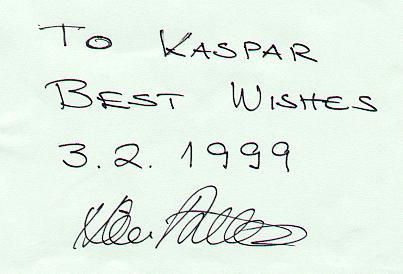 To KASPAR
BEST WISHES
3.2. 1999